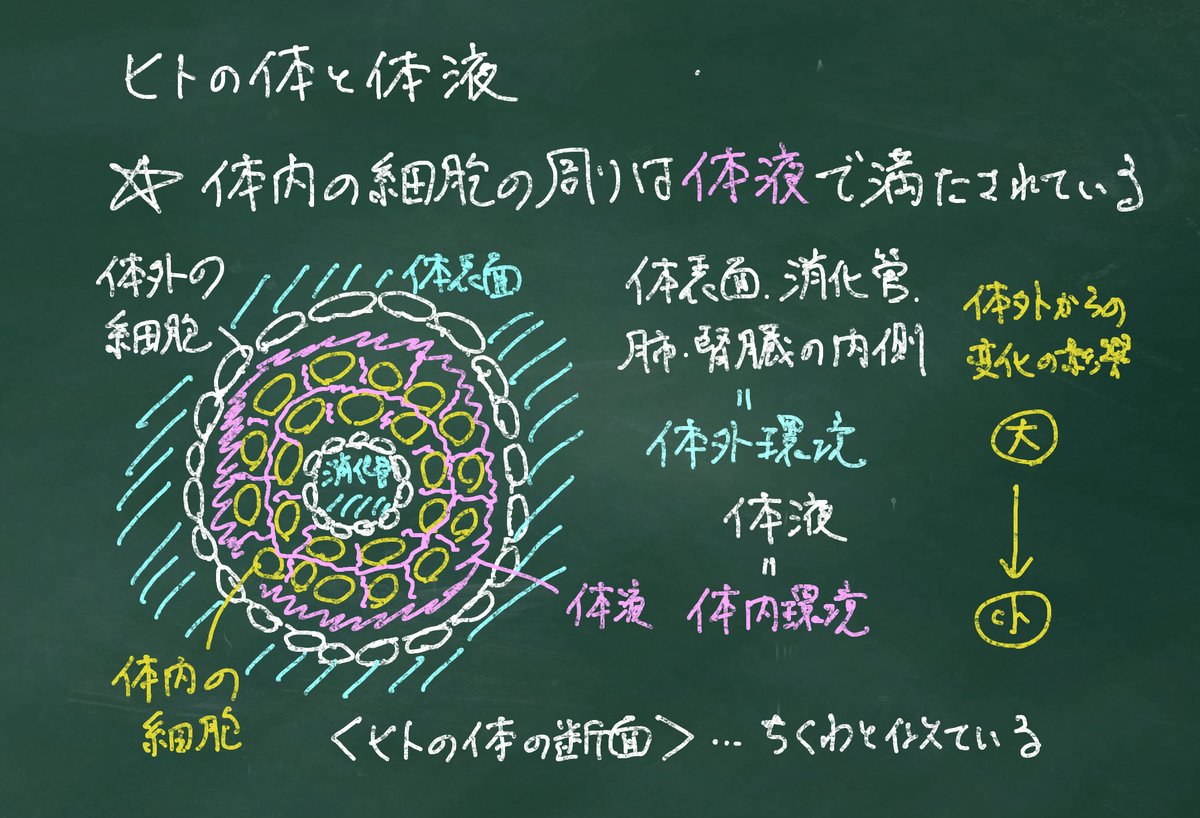 ヒトの体と体液
☆ 体内の細胞の周りは体液で満たされている
体外の
細胞
体表面
消化管
体液
体内の
細胞
体表面.消化管.
肺.腎臓の内側
=
体外環境
体液
=
体内環境
体外からの
変化の影響
大
↓
小
<ヒトの体の断面>…ちくわと似ている